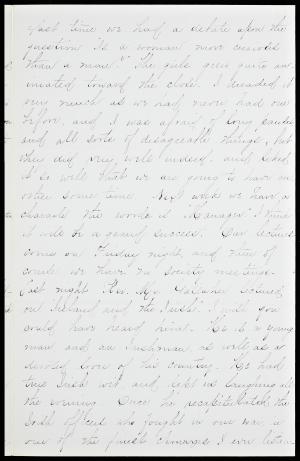 last time we had a debate upon the
question "Is a woman more curious
than a man." The girls grew quite an-
imated toward the close. I dreaded it
very much as we had never had one
before, and I was afraid of long pauses
and all sorts of disagreeable things, but
they did very well indeed, and liked
it so well that we are going to have an
other some time. Next week we have a
charade the word is "Manager" I think
it will be a grand success. Our lectures
come on Friday night, and then of
course we have no Society meetings.
Last night Rev. Mr. lectured
on "Ireland and the Irish". I wish you
could have heard him. He is a young
man and an Irishman as well as a
devoted lover of his country. He had
true Irish wit and kept us laughing all
the evening. Once he recapitulated the
Irish officers who fought in our war, in
one of the finest climaxes I ever listen